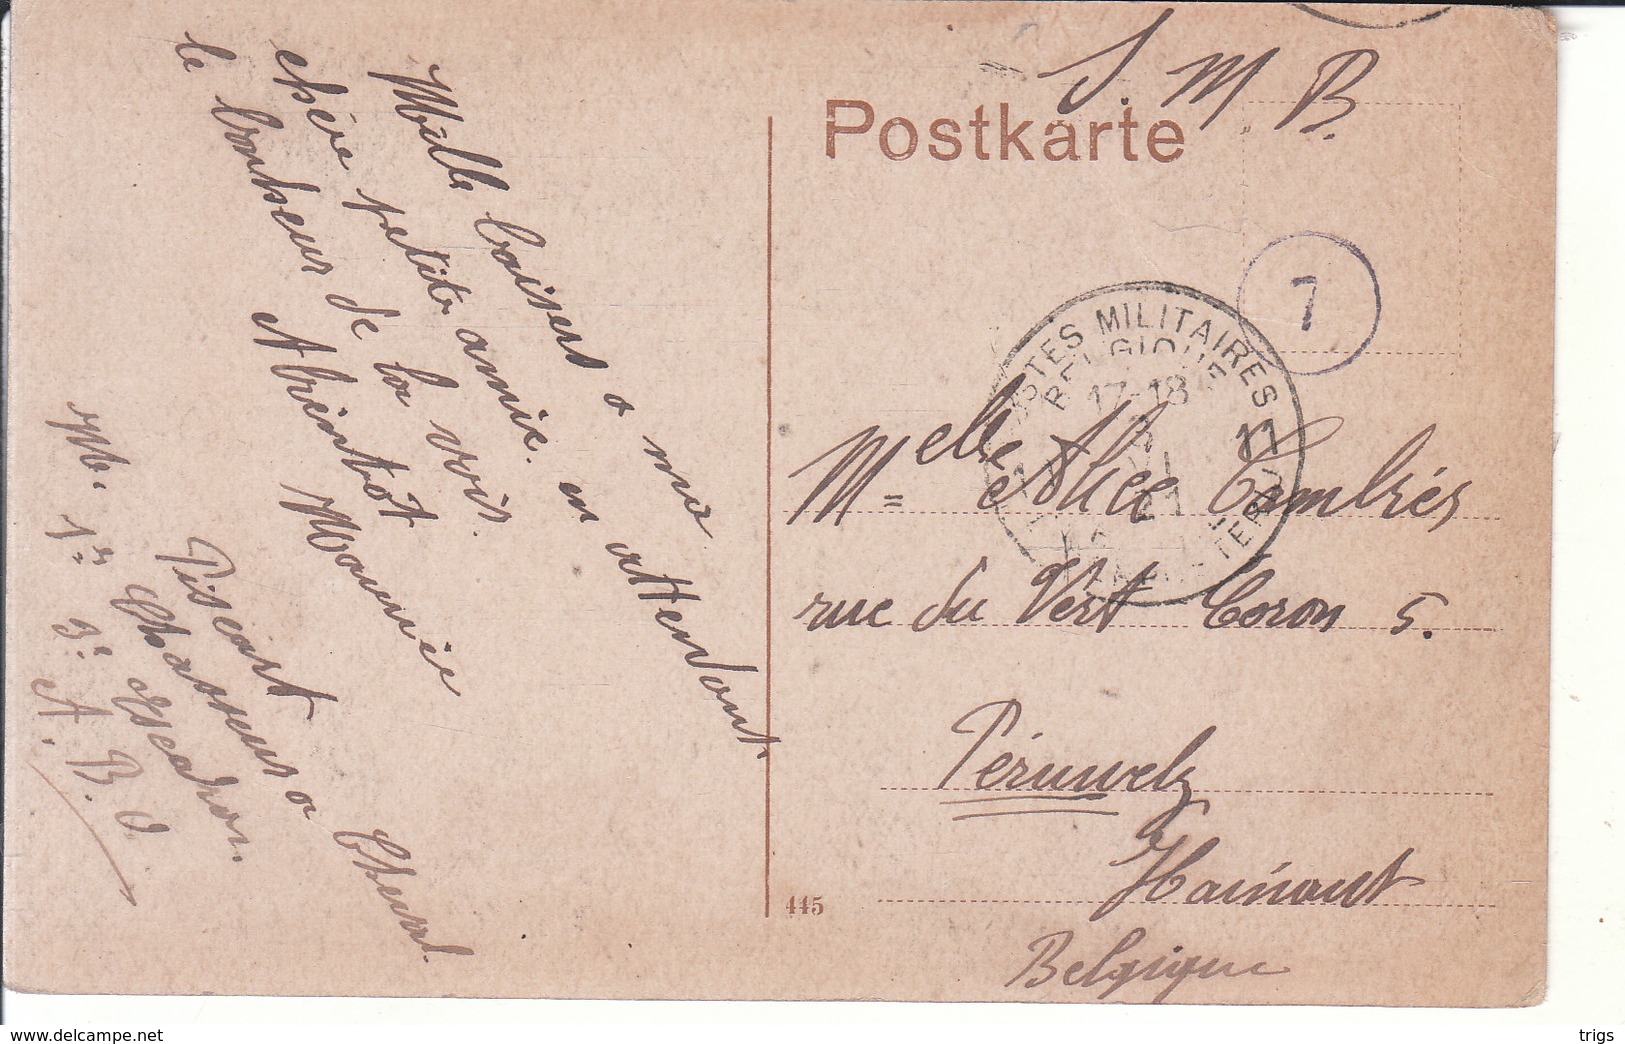 S. M. B.
Postkarte
7
POSTES MILITAIRES
BELGIQUE
17-18
11
Mille baisers a ma
chère petite amie. en attendant
le bonheur de la voir.
A bientôt
Maurice
M. Piscart
1er Chasseur a Cheval
3e Escadron.
A. B. O.
Melle Alice Cambrés
rue du Vert Coron 5.
Péruwelz
Hainaut
Belgique
445
www.delcampe.net
trigs